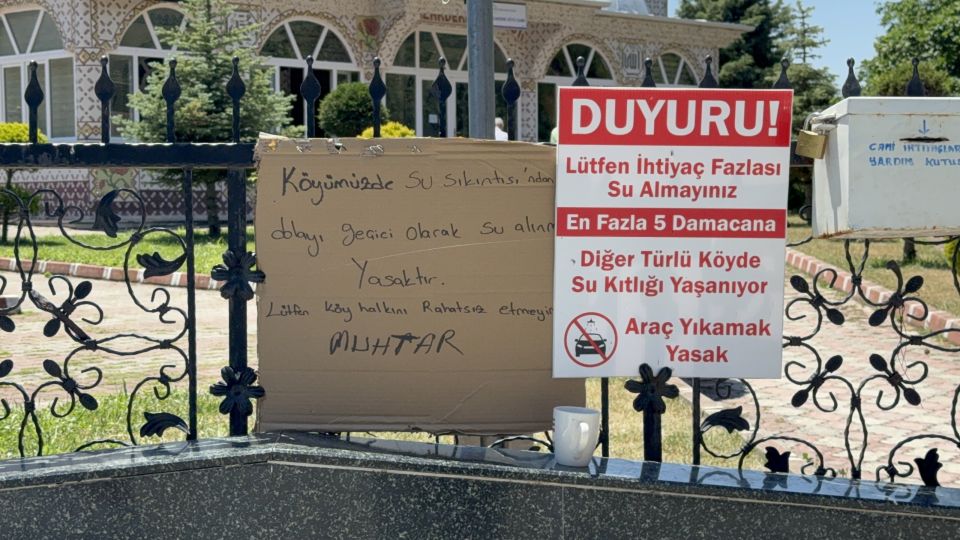 Köyümüzde su sıkıntısı'ndan
dolayı geçici olarak su alınm
Yasaktır.
Lütfen köy halkını Rahatsız etmeyin
MUHTAR
DUYURU!
Lütfen İhtiyaç Fazlası
Su Almayınız
En Fazla 5 Damacana
Diğer Türlü Köyde
Su Kıtlığı Yaşanıyor
Araç Yıkamak
Yasak
YARDIM KUTUSU